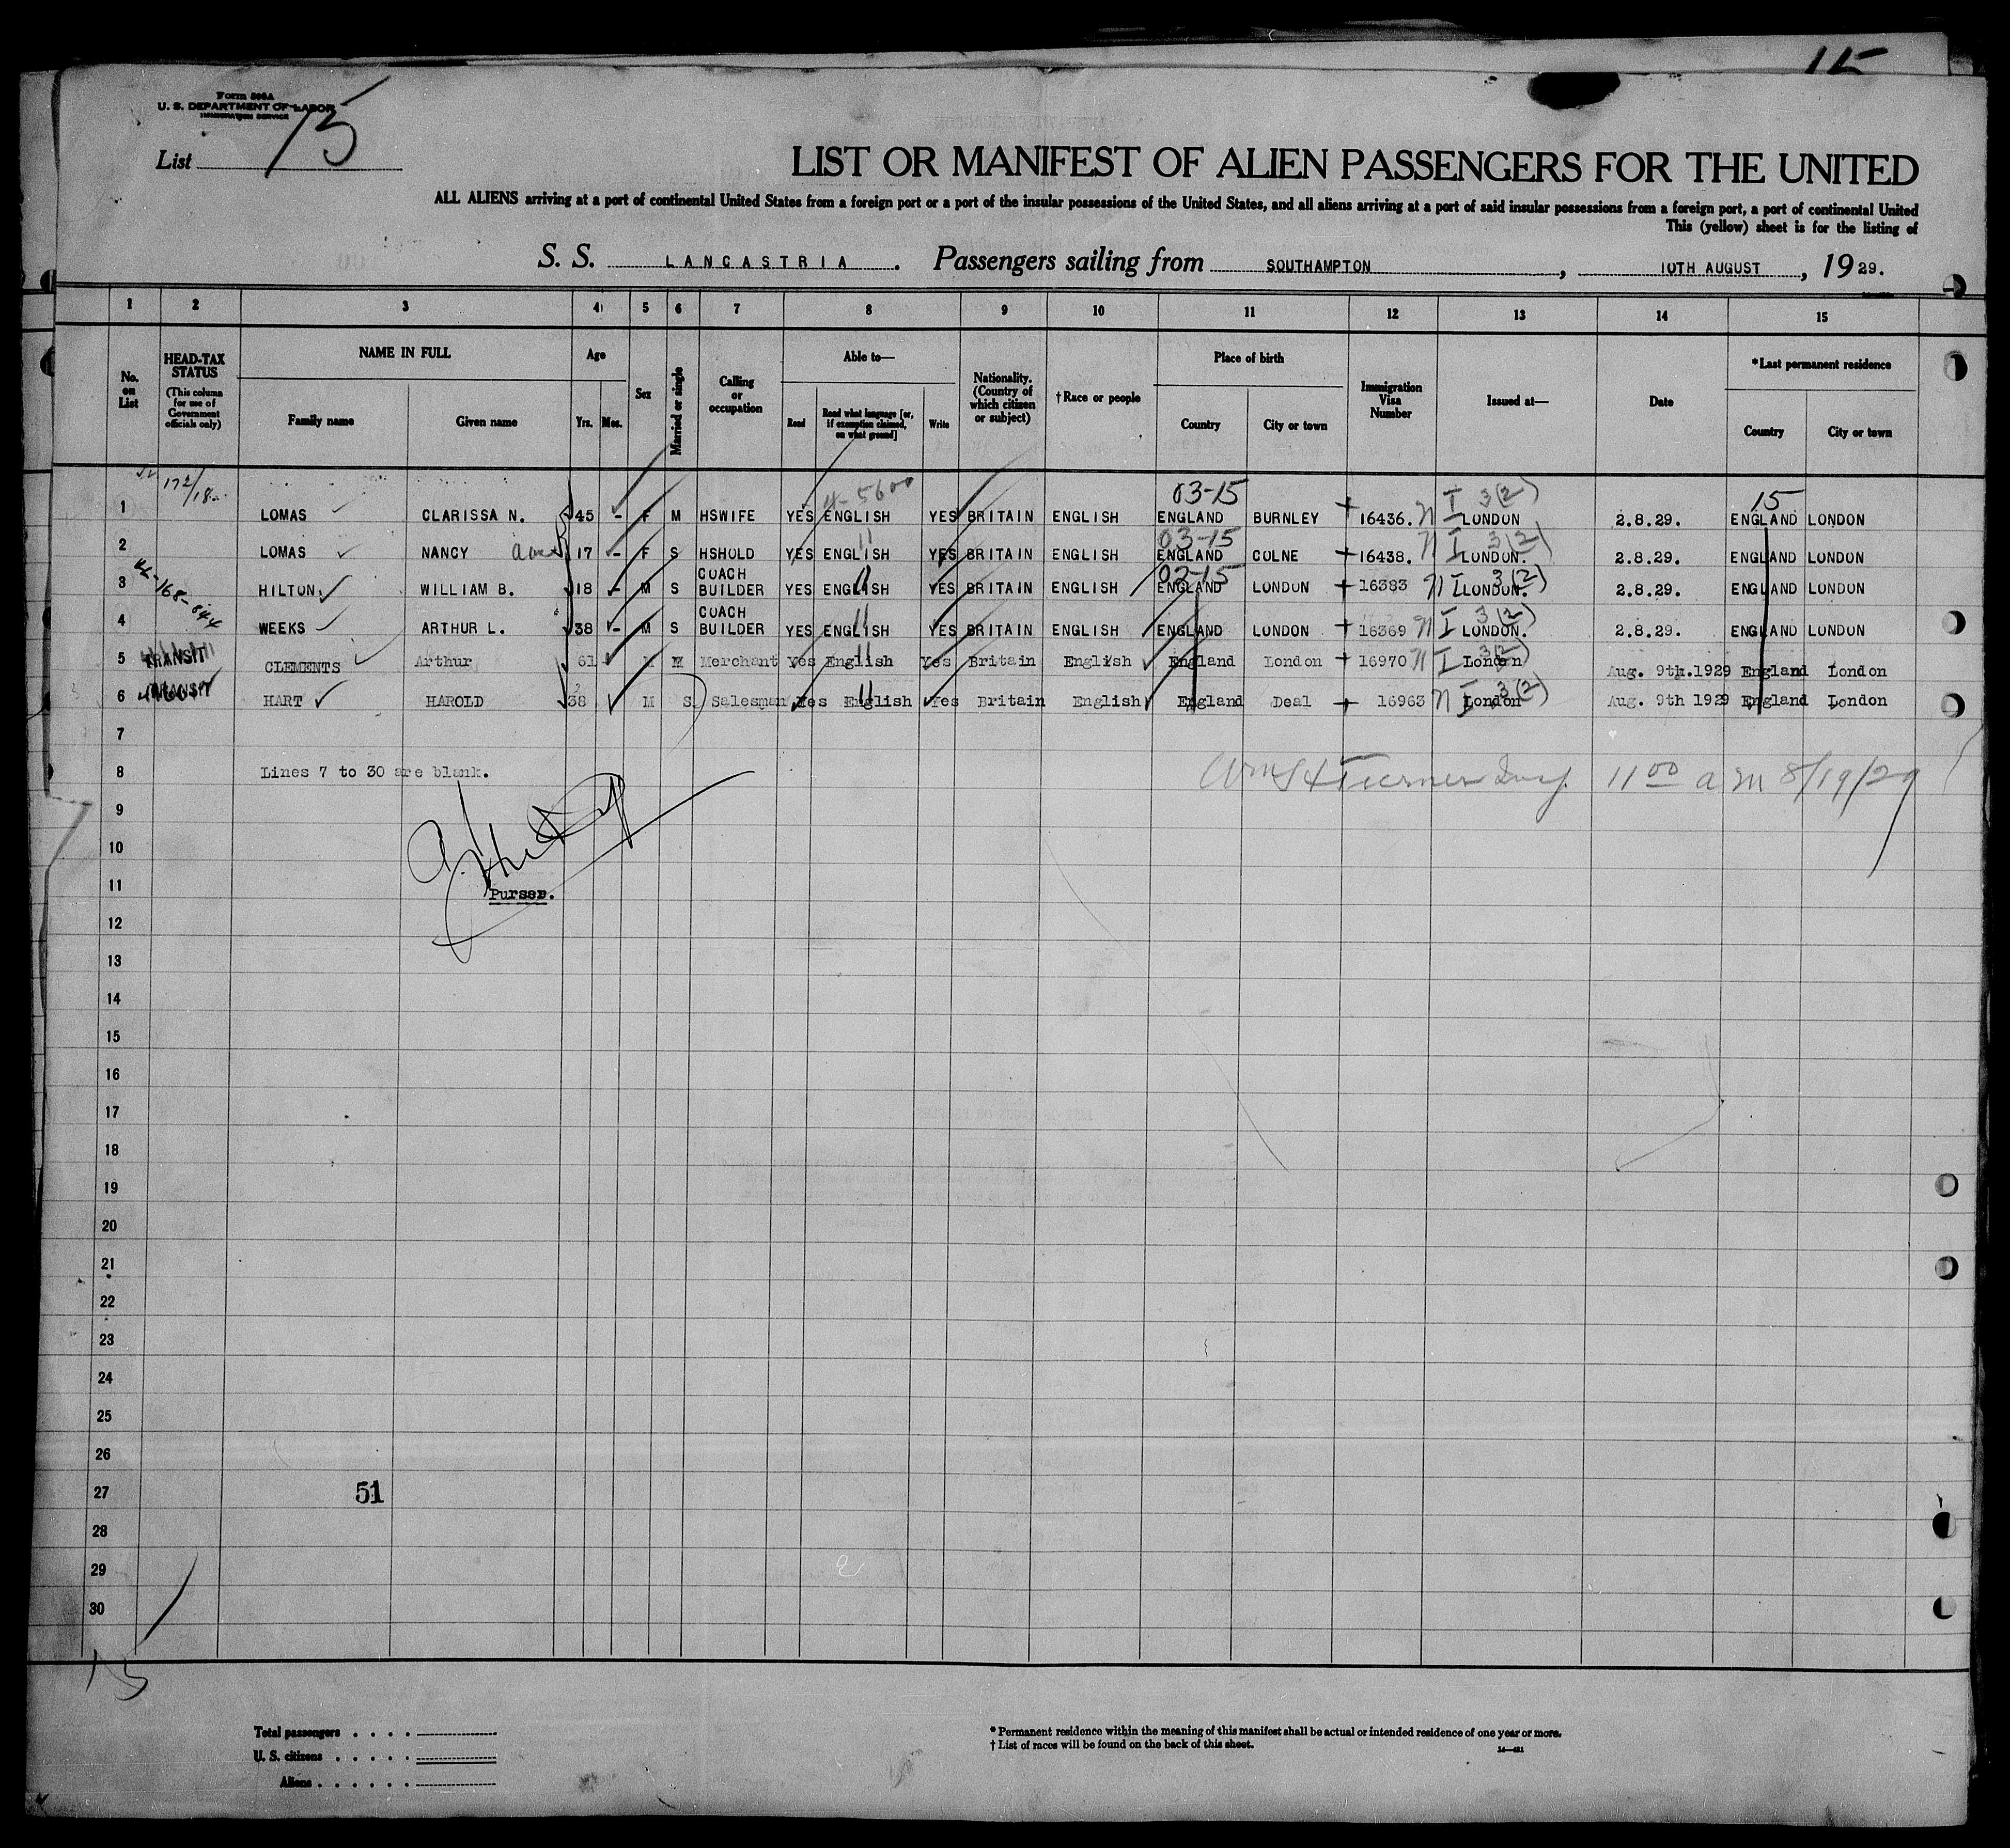 15
Form 500A
U. S. DEPARTMENT OF LABOR
IMMIGRATION SERVICE
List 15
LIST OR MANIFEST OF ALIEN PASSENGERS FOR THE UNITED
ALL ALIENS arriving at a port of continental United States from a foreign port or a port of the insular possessions of the United States, and all aliens arriving at a port of said insular possessions from a foreign port, a port of continental United
This (yellow) sheet is for the listing of
S. S. LANCASTRIA. Passengers sailing from SOUTHAMPTON, 10TH AUGUST, 1929.
1 2 3 4 5 6 7 8 9 10 11 12 13 14 15
No. on List
HEAD-TAX STATUS (This column for use of Government officials only)
NAME IN FULL
Family name Given name
Age
Yrs. Mos.
Sex
Married or single
Calling or occupation
Able to—
Read Read what language [or, if exemption claimed, on what ground] Write
Nationality. (Country of which citizen or subject)
†Race or people
Place of birth
Country City or town
Immigration Visa Number
Issued at—
Date
*Last permanent residence
Country City or town
172/18 4-5600 03-15 I 3(2) 15
1 LOMAS CLARISSA N. 45 - F M HSWIFE YES ENGLISH YES BRITAIN ENGLISH ENGLAND BURNLEY 16436. LONDON 2.8.29. ENGLAND LONDON
03-15 I 3(2)
2 LOMAS NANCY 17 - F S HSHOLD YES ENGLISH YES BRITAIN ENGLISH ENGLAND COLNE 16438. LONDON. 2.8.29. ENGLAND LONDON
02-15 I 3(2)
3 HILTON WILLIAM B. 18 - M S COACH BUILDER YES ENGLISH YES BRITAIN ENGLISH ENGLAND LONDON 16383 LONDON. 2.8.29. ENGLAND LONDON
I 3(2)
4 WEEKS ARTHUR L. 38 - M S COACH BUILDER YES ENGLISH YES BRITAIN ENGLISH ENGLAND LONDON 16369 LONDON. 2.8.29. ENGLAND LONDON
I 3(2)
5 TRANSIT CLEMENTS Arthur 61 M M Merchant Yes English Yes Britain English England London 16970 London Aug. 9th.1929 England London
I 3(2)
6 TRANSIT HART HAROLD 38 M S Salesman Yes English Yes Britain English England Deal 16963 London Aug. 9th 1929 England London
7
8 Lines 7 to 30 are blank. 11 00 a m 8/19/29
9
10
11
Purser.
12
13
14
15
16
17
18
19
20
21
22
23
24
25
26
27 51
28
29
30
15
Total passengers . . . .
U. S. citizens . . . . .
Aliens . . . . . .
* Permanent residence within the meaning of this manifest shall be actual or intended residence of one year or more.
† List of races will be found on the back of this sheet.